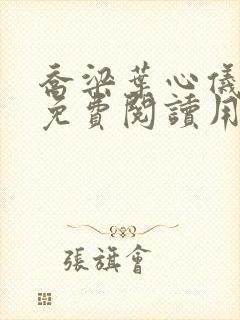 喬梁葉心儀
免費閱讀用
張旗會